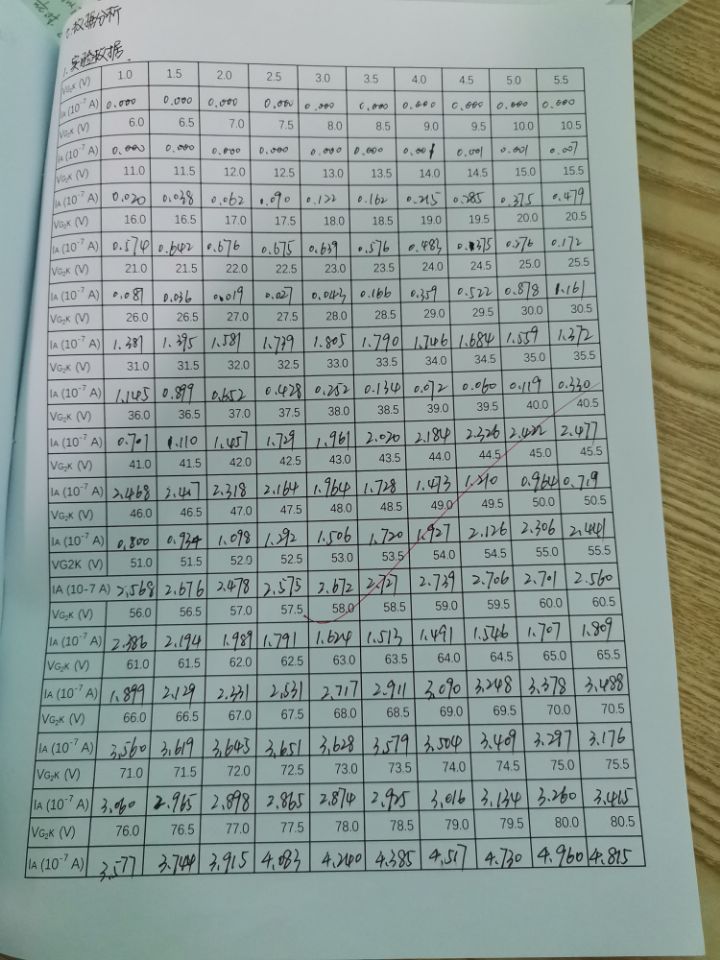 数据分析
1.实验数据
VG₂K (V) 1.0 1.5 2.0 2.5 3.0 3.5 4.0 4.5 5.0 5.5
IA (10⁻⁷ A) 0.000 0.000 0.000 0.000 0.000 0.000 0.000 0.000 0.000 0.000
VG₂K (V) 6.0 6.5 7.0 7.5 8.0 8.5 9.0 9.5 10.0 10.5
IA (10⁻⁷ A) 0.000 0.000 0.000 0.000 0.000 0.000 0.001 0.001 0.001 0.007
VG₂K (V) 11.0 11.5 12.0 12.5 13.0 13.5 14.0 14.5 15.0 15.5
IA (10⁻⁷ A) 0.020 0.038 0.062 0.090 0.122 0.162 0.215 0.285 0.375 0.479
VG₂K (V) 16.0 16.5 17.0 17.5 18.0 18.5 19.0 19.5 20.0 20.5
IA (10⁻⁷ A) 0.574 0.642 0.676 0.675 0.639 0.576 0.483 0.375 0.276 0.172
VG₂K (V) 21.0 21.5 22.0 22.5 23.0 23.5 24.0 24.5 25.0 25.5
IA (10⁻⁷ A) 0.087 0.036 0.019 0.027 0.043 0.166 0.359 0.522 0.878 1.161
VG₂K (V) 26.0 26.5 27.0 27.5 28.0 28.5 29.0 29.5 30.0 30.5
IA (10⁻⁷ A) 1.381 1.395 1.581 1.739 1.805 1.790 1.746 1.684 1.559 1.372
VG₂K (V) 31.0 31.5 32.0 32.5 33.0 33.5 34.0 34.5 35.0 35.5
IA (10⁻⁷ A) 1.145 0.899 0.652 0.428 0.252 0.134 0.072 0.060 0.119 0.330
VG₂K (V) 36.0 36.5 37.0 37.5 38.0 38.5 39.0 39.5 40.0 40.5
IA (10⁻⁷ A) 0.701 1.110 1.457 1.729 1.961 2.020 2.184 2.326 2.422 2.477
VG₂K (V) 41.0 41.5 42.0 42.5 43.0 43.5 44.0 44.5 45.0 45.5
IA (10⁻⁷ A) 2.468 2.417 2.318 2.164 1.964 1.728 1.473 1.210 0.964 0.719
VG₂K (V) 46.0 46.5 47.0 47.5 48.0 48.5 49.0 49.5 50.0 50.5
IA (10⁻⁷ A) 0.800 0.934 1.098 1.292 1.506 1.720 1.927 2.126 2.306 2.441
VG2K (V) 51.0 51.5 52.0 52.5 53.0 53.5 54.0 54.5 55.0 55.5
IA (10-7 A) 2.568 2.676 2.478 2.575 2.672 2.727 2.739 2.706 2.701 2.560
VG₂K (V) 56.0 56.5 57.0 57.5 58.0 58.5 59.0 59.5 60.0 60.5
IA (10⁻⁷ A) 2.386 2.194 1.989 1.791 1.624 1.513 1.491 1.546 1.707 1.809
VG₂K (V) 61.0 61.5 62.0 62.5 63.0 63.5 64.0 64.5 65.0 65.5
IA (10⁻⁷ A) 1.899 2.129 2.331 2.531 2.717 2.911 3.090 3.248 3.378 3.488
VG₂K (V) 66.0 66.5 67.0 67.5 68.0 68.5 69.0 69.5 70.0 70.5
IA (10⁻⁷ A) 3.560 3.619 3.645 3.651 3.628 3.579 3.504 3.409 3.297 3.176
VG₂K (V) 71.0 71.5 72.0 72.5 73.0 73.5 74.0 74.5 75.0 75.5
IA (10⁻⁷ A) 3.060 2.965 2.898 2.865 2.874 2.925 3.016 3.134 3.260 3.415
VG₂K (V) 76.0 76.5 77.0 77.5 78.0 78.5 79.0 79.5 80.0 80.5
IA (10⁻⁷ A) 3.577 3.744 3.915 4.083 4.240 4.385 4.517 4.730 4.960 4.815